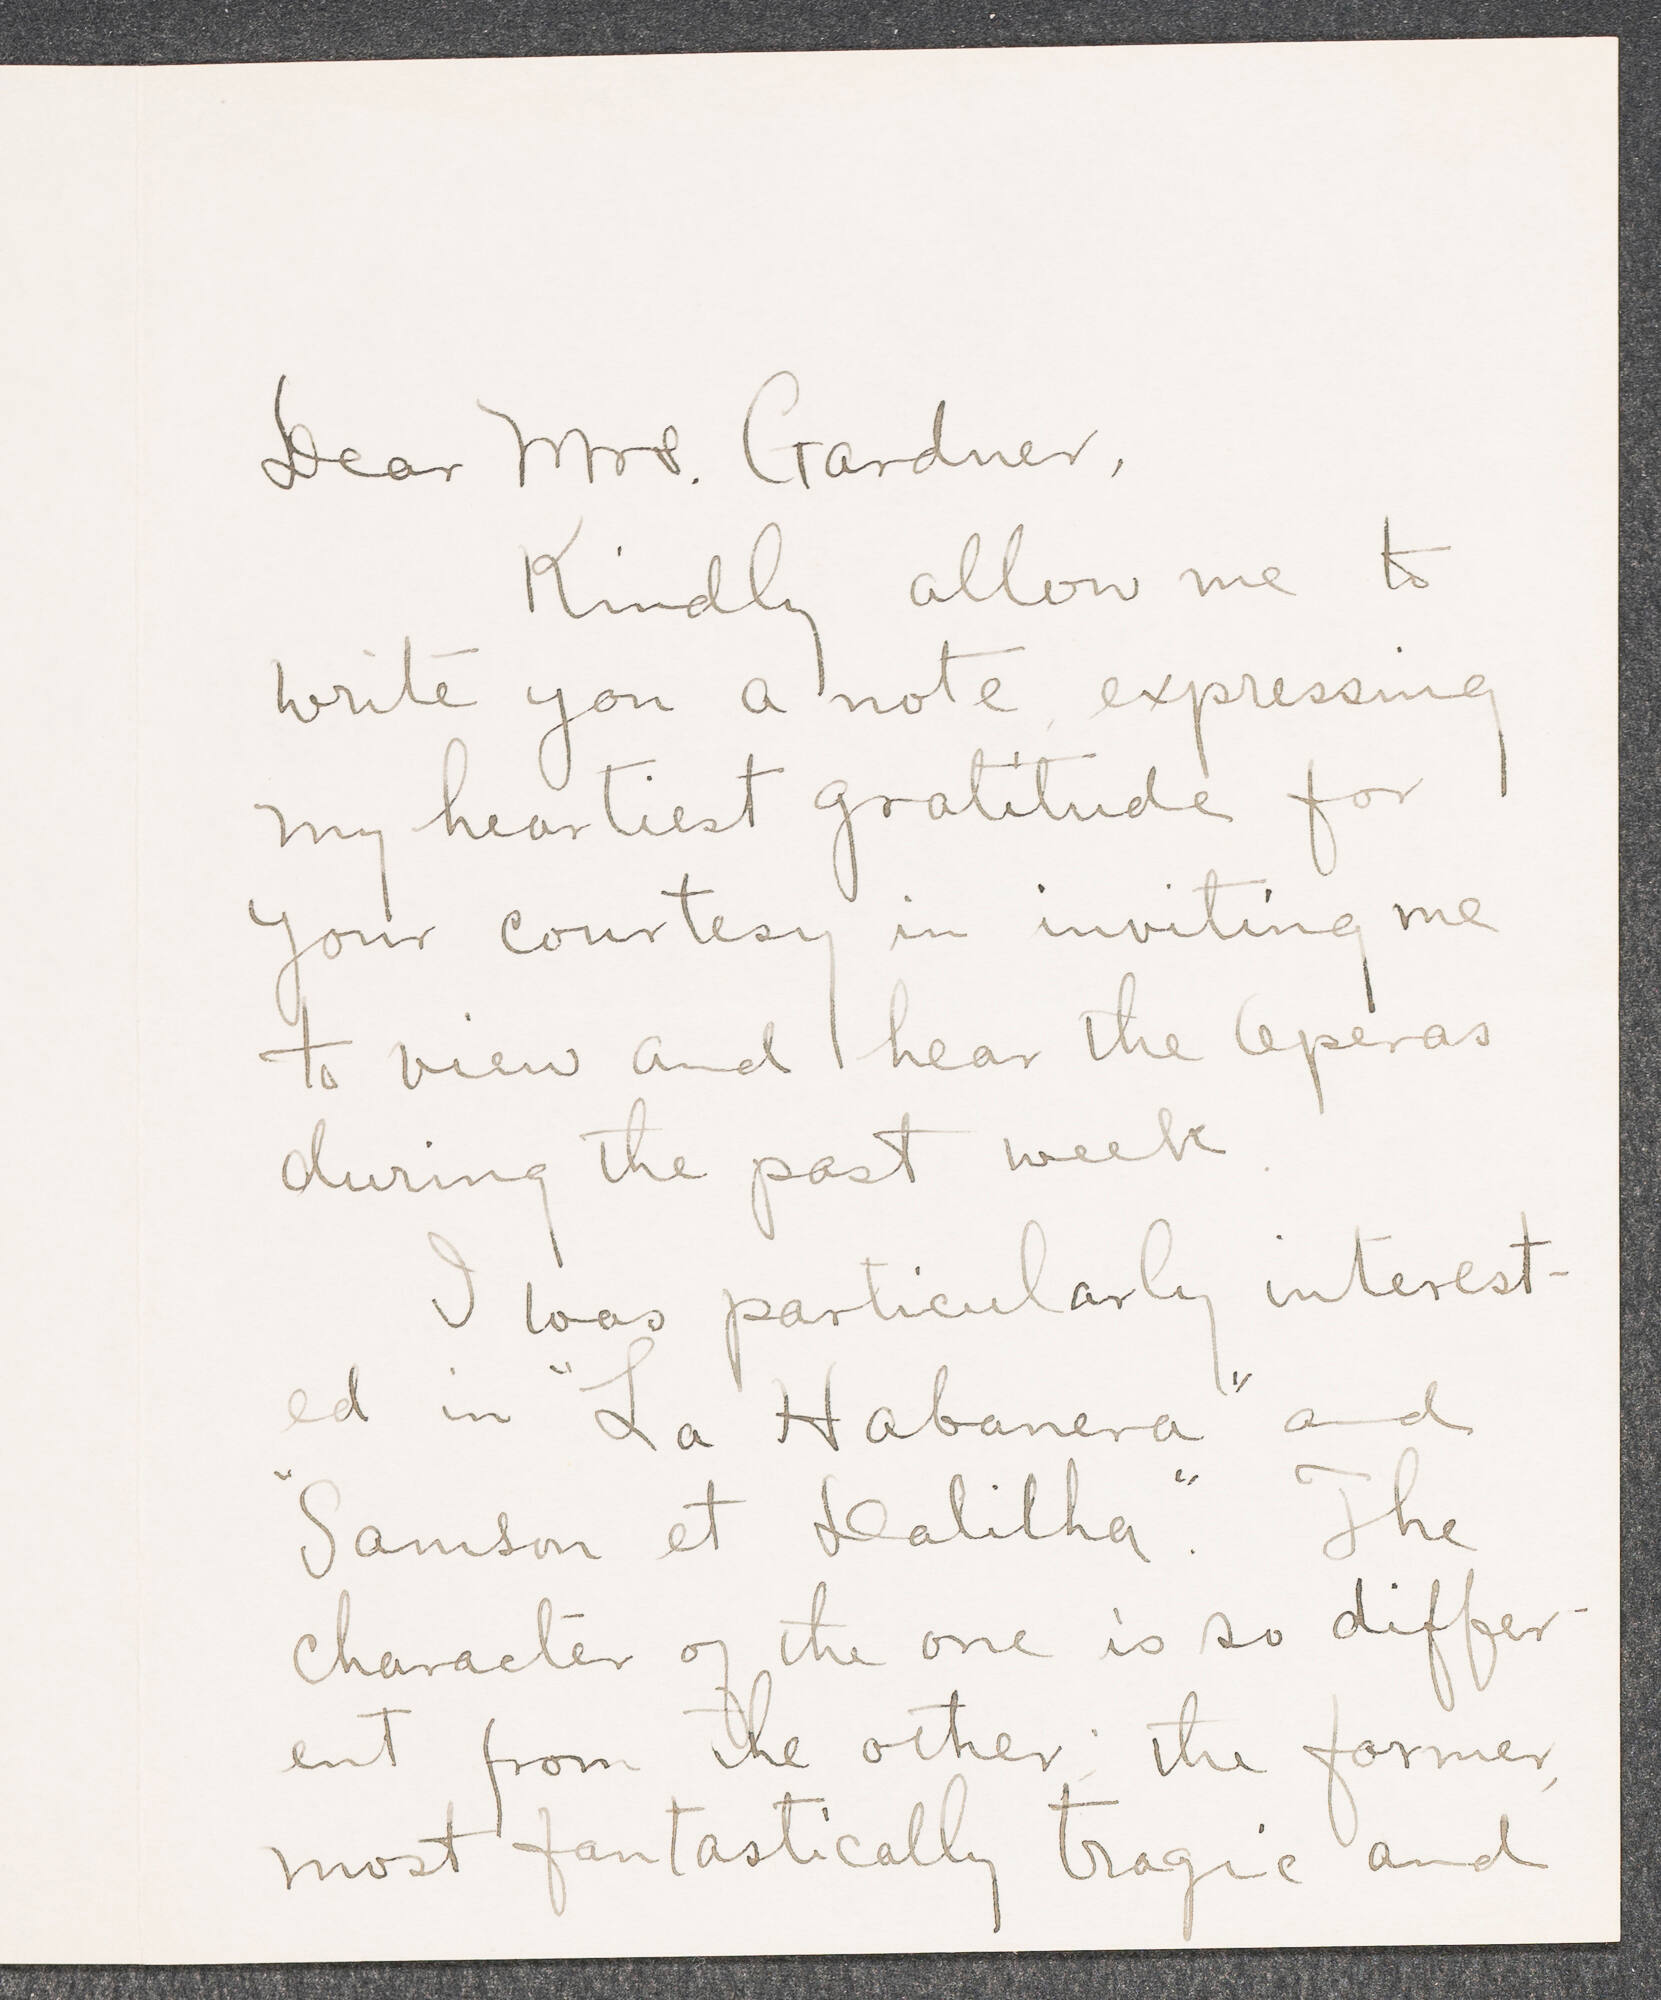 Dear Mrs. Gardner,
Kindly allow me to
write you a note, expressing
my heartiest gratitude for
your courtesy in inviting me
to view and hear the Operas
during the past week.
I was particularly interest-
ed in "La Habanera" and
"Samson et Dalilha". The
character of the one is so differ-
ent from the other; the former,
most fantastically tragic and